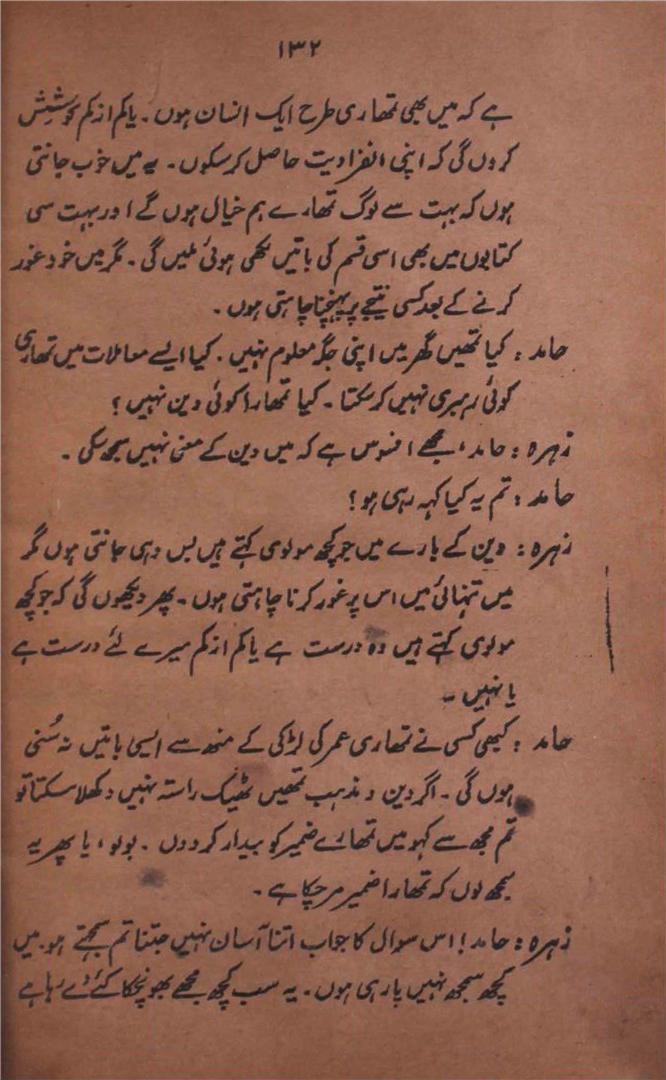 ۱۳۲
ہے کہ میں بھی تمھاری طرح ایک انسان ہوں۔ یا کم از کم کوشِش
کروں گی کہ اپنی انفرادیت حاصل کر سکوں۔ یہ میں خوب جانتی
ہوں کہ بہت سے لوگ تمھارے ہم خیال ہوں گے اور بہت سی
کتابوں میں بھی اسی قسم کی باتیں لکھی ہوئی ملیں گی۔ مگر میں خود غور
کرنے کے بعد کسی نتیجے پر پہنچنا چاہتی ہوں۔
حامد : کیا تمھیں گھر میں اپنی جگہ معلوم نہیں۔ کیا ایسے معاملات میں تمھاری
کوئی رہبری نہیں کر سکتا۔ کیا تمھارا کوئی دین نہیں؟
زہرہ : حامد، مجھے افسوس ہے کہ میں دین کے معنی نہیں سمجھ سکی۔
حامد : تم یہ کیا کہہ رہی ہو؟
زہرہ : دین کے بارے میں جو کچھ مولوی کہتے ہیں بس وہی جانتی ہوں مگر
میں تنہائی میں اس پر غور کرنا چاہتی ہوں۔ پھر دیکھوں گی کہ جو کچھ
مولوی کہتے ہیں وہ درست ہے یا کم از کم میرے لئے درست ہے
یا نہیں۔
حامد : کبھی کسی نے تمھاری عمر کی لڑکی کے منھ سے ایسی باتیں نہ سُنی
ہوں گی۔ اگر دین و مذہب تمھیں ٹھیک راستہ نہیں دکھلا سکتا تو
تم مجھ سے کہو میں تمھارے ضمیر کو بیدار کر دوں۔ بولو، یا پھر یہ
سمجھ لوں کہ تمھارا ضمیر مر چکا ہے۔
زہرہ : حامد! اس سوال کا جواب اتنا آسان نہیں جتنا تم سمجھتے ہو۔ میں
کچھ سمجھ نہیں پا رہی ہوں۔ یہ سب کچھ مجھے بھونچکا کئے دے رہا ہے